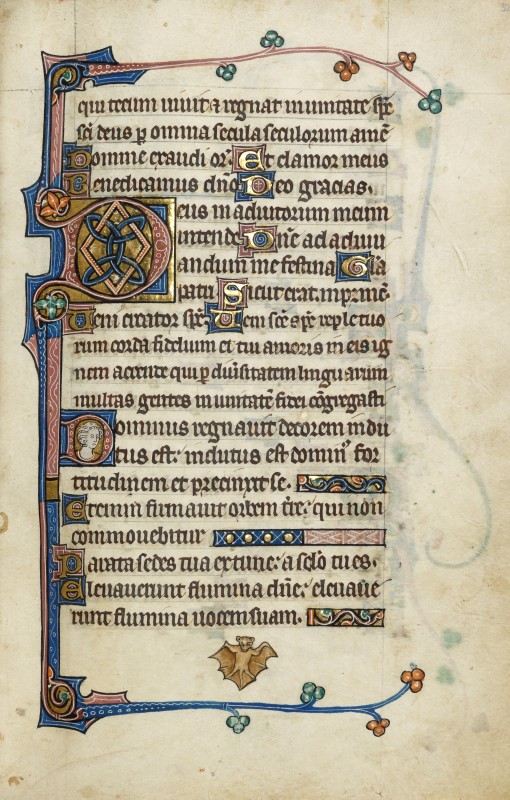 qui tecum uiuit ⁊ regnat in unitate spc̄
sc̄i deus p̄ omnia secula seculorum amē
Domine exaudi or̄ Et clamor meus
Benedicamus dn̄o Deo gracias.
Deus in adiutorium meum
intende Dn̄e ad adiuu
andum me festina Gl̄a
patri Sicut erat in prinē.
Ueni creator spc̄ Ueni sc̄e spc̄ reple tuo
rum corda fidelium et tui amoris in eis ig
nem accende qui p̄ diu̾sitatem linguarum
multas gentes in unitatē fidei cōgregasti
Dominus regnauit decorem indu
tus est: indutus est domin᷒ for
titudinem et precinxit se.
Etenim firmauit orbem tr̄e: qui non
commouebitur
Parata sedes tua ex tunc: a sc̄lo tu es.
Eleuauerunt flumina dn̄e: eleuaue
runt flumina uocem suam.